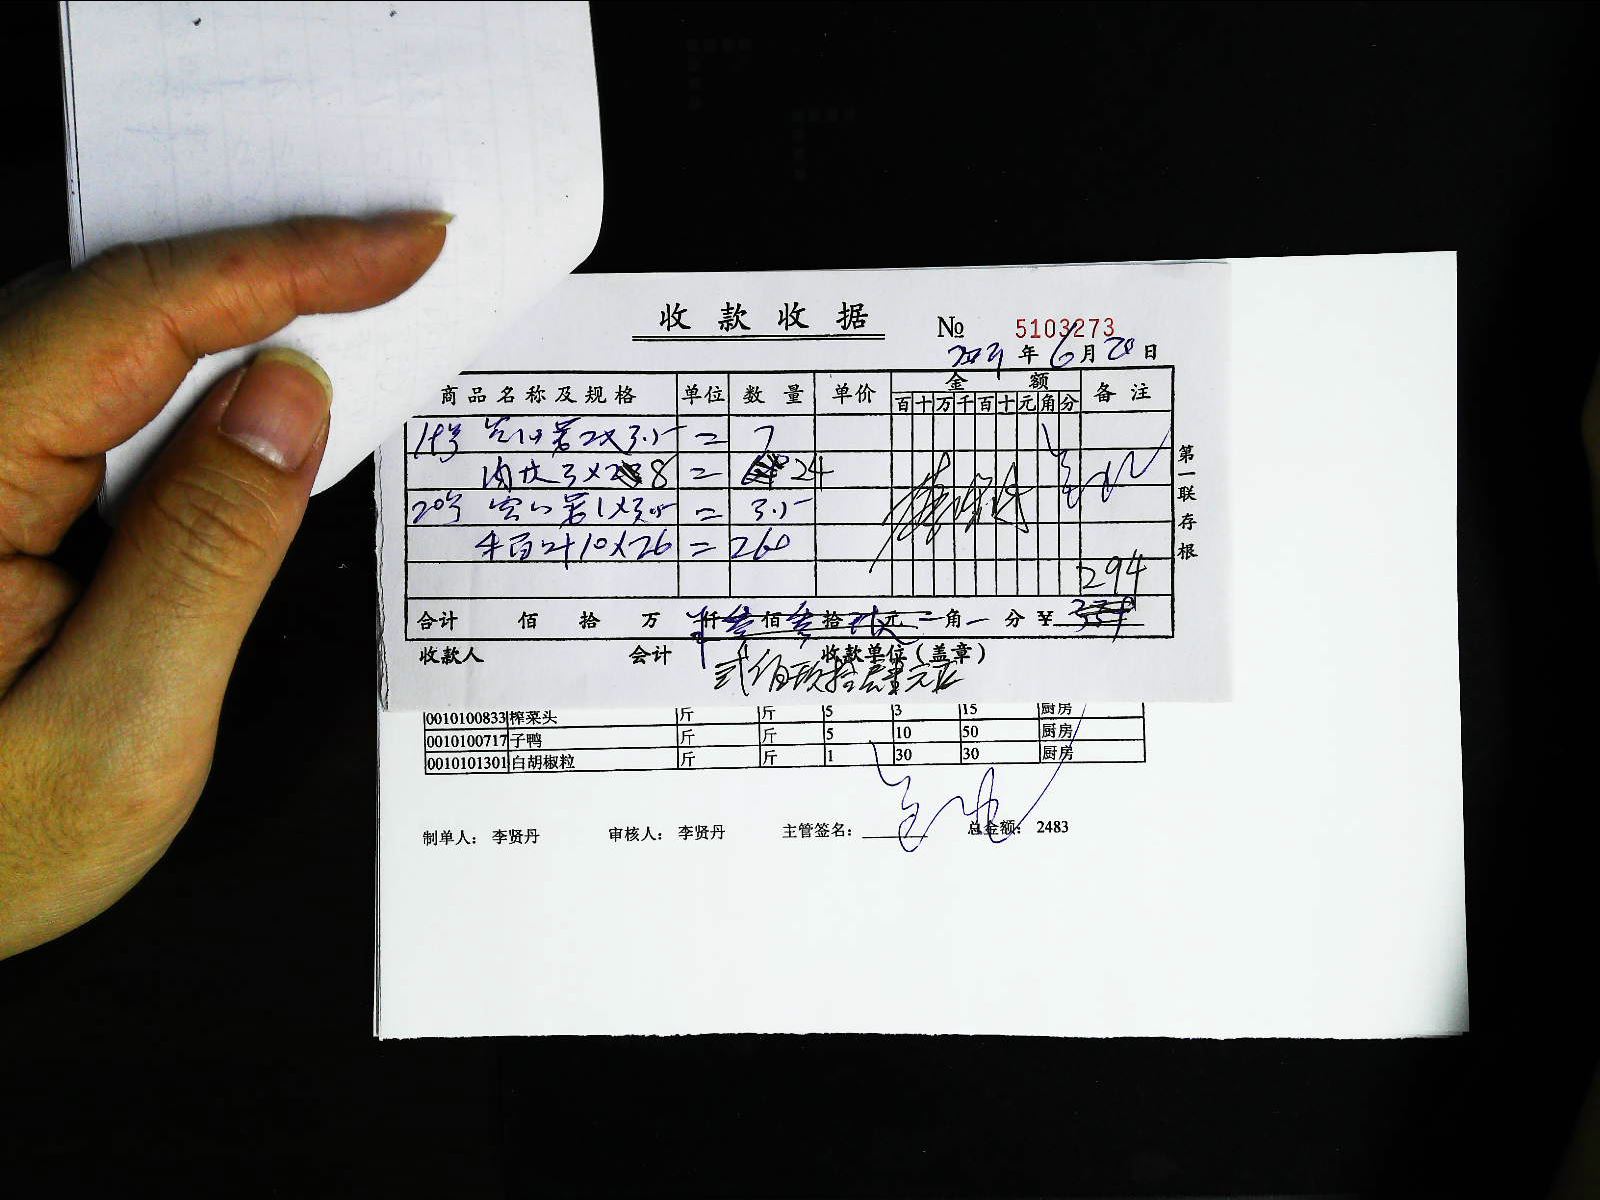 收款收据
№ 5103273
2021年6月20日
商品名称及规格 单位 数量 单价 金额 备注
百十万千百十元角分
2×3.5 = 7
3×8 = 24
20号 1×3.5 = 3.5
10×26 = 260
294
合计 佰 拾 万 仟 佰 拾 元 角 分 ¥
收款人 会计 收款单位(盖章)
贰佰玖拾肆元正
第一联存根
0010100833 榨菜头 斤 斤 5 3 15 厨房
0010100717 子鸭 斤 斤 5 10 50 厨房
0010101301 白胡椒粒 斤 斤 1 30 30 厨房
制单人: 李贤丹 审核人: 李贤丹 主管签名: 总金额: 2483